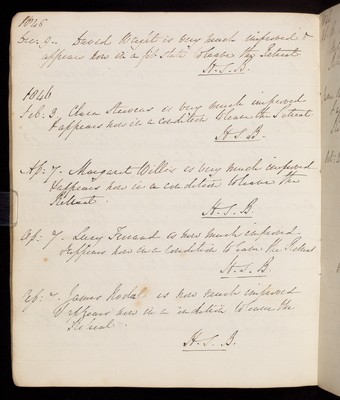 1845
Dec: 9. David Wright is very much improved &
appears now in a fit state to leave the Retreat
H. S. B.
1846
Feb: 3. Clara is very much improved
& appears now in a condition to leave the Retreat.
H. S. B.
Ap: 7. Margaret Willis is very much improved
& appears now in a condition to leave the
Retreat
H. S. B.
Ap: 7. Lucy is now much improved
& appears now in a condition to leave the Retreat
H. S. B.
James is now much improved
& appears now in a condition to leave the
Retreat.
H. S. B.